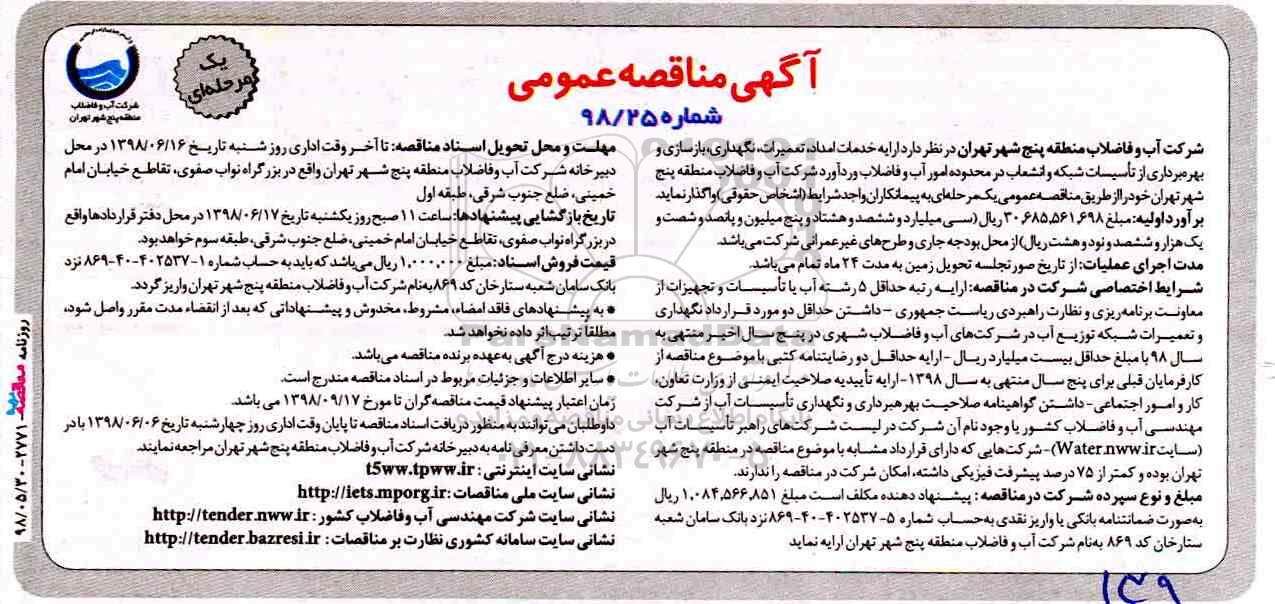 آگهی مناقصه عمومی
شماره ۹۸/۲۵
یک
مرحله‌ای
شرکت آب و فاضلاب
منطقه پنج شهر تهران
شرکت آب و فاضلاب منطقه پنج شهر تهران در نظر دارد ارایه خدمات امداد، تعمیرات، نگهداری، بازسازی و
بهره‌برداری از تأسیسات شبکه و انشعاب در محدوده امور آب و فاضلاب وردآورد شرکت آب و فاضلاب منطقه پنج
شهر تهران خود را از طریق مناقصه عمومی یک مرحله‌ای به پیمانکاران واجد شرایط (اشخاص حقوقی) واگذار نماید.
برآورد اولیه: مبلغ ۳۰,۶۸۵,۵۶۱,۶۹۸ ریال (سی میلیارد و ششصد و هشتاد و پنج میلیون و پانصد و شصت و
یک هزار و ششصد و نود و هشت ریال) از محل بودجه جاری و طرح‌های غیر عمرانی شرکت می‌باشد.
مدت اجرای عملیات: از تاریخ صورتجلسه تحویل زمین به مدت ۲۴ ماه تمام می‌باشد.
شرایط اختصاصی شرکت در مناقصه: ارایه رتبه حداقل ۵ رشته آب یا تأسیسات و تجهیزات از
معاونت برنامه‌ریزی و نظارت راهبردی ریاست جمهوری - داشتن حداقل دو مورد قرارداد نگهداری
و تعمیرات شبکه توزیع آب در شرکت‌های آب و فاضلاب شهری در پنج سال اخیر منتهی به
سال ۹۸ با مبلغ حداقل بیست میلیارد ریال - ارایه حداقل دو رضایتنامه کتبی با موضوع مناقصه از
کارفرمایان قبلی برای پنج سال منتهی به سال ۱۳۹۸ - ارایه تأییدیه صلاحیت ایمنی از وزارت تعاون،
کار و امور اجتماعی - داشتن گواهینامه صلاحیت بهره‌برداری و نگهداری تأسیسات آب از شرکت
مهندسی آب و فاضلاب کشور یا وجود نام آن شرکت در لیست شرکت‌های راهبر تأسیسات آب
(سایت Water.nww.ir) - شرکت‌هایی که دارای قرارداد مشابه با موضوع مناقصه در منطقه پنج شهر
تهران بوده و کمتر از ۷۵ درصد پیشرفت فیزیکی داشته، امکان شرکت در مناقصه را ندارند.
مبلغ و نوع سپرده شرکت در مناقصه: پیشنهاد دهنده مکلف است مبلغ ۱,۰۸۴,۵۶۶,۸۵۱ ریال
به‌صورت ضمانتنامه بانکی یا واریز نقدی به‌حساب شماره ۵-۴۰۲۵۳۷-۴۰-۸۶۹ نزد بانک سامان شعبه
ستارخان کد ۸۶۹ به‌نام شرکت آب و فاضلاب منطقه پنج شهر تهران ارایه نماید
مهلت و محل تحویل اسناد مناقصه: تا آخر وقت اداری روز شنبه تاریخ ۱۳۹۸/۰۶/۱۶ در محل
دبیرخانه شرکت آب و فاضلاب منطقه پنج شهر تهران واقع در بزرگراه نواب صفوی، تقاطع خیابان امام
خمینی، ضلع جنوب شرقی، طبقه اول
تاریخ بازگشایی پیشنهادها: ساعت ۱۱ صبح روز یکشنبه تاریخ ۱۳۹۸/۰۶/۱۷ در محل دفتر قراردادها واقع
در بزرگراه نواب صفوی، تقاطع خیابان امام خمینی، ضلع جنوب شرقی، طبقه سوم خواهد بود.
قیمت فروش اسناد: مبلغ ۱,۰۰۰,۰۰۰ ریال می‌باشد که باید به حساب شماره ۱-۴۰۲۵۳۷-۴۰-۸۶۹ نزد
بانک سامان شعبه ستارخان کد ۸۶۹ به‌نام شرکت آب و فاضلاب منطقه پنج شهر تهران واریز گردد.
● به پیشنهادهای فاقد امضاء، مشروط، مخدوش و پیشنهاداتی که بعد از انقضاء مدت مقرر واصل شود،
مطلقا ترتیب‌اثر داده نخواهد شد.
● هزینه درج آگهی به‌عهده برنده مناقصه می‌باشد.
● سایر اطلاعات و جزئیات مربوط در اسناد مناقصه مندرج است.
زمان اعتبار پیشنهاد قیمت مناقصه‌گران تا مورخ ۱۳۹۸/۰۹/۱۷ می باشد.
داوطلبان می‌توانند به منظور دریافت اسناد مناقصه تا پایان وقت اداری روز چهارشنبه تاریخ ۱۳۹۸/۰۶/۰۶ با در
دست داشتن معرفی نامه به دبیرخانه شرکت آب و فاضلاب منطقه پنج شهر تهران مراجعه نمایند.
نشانی سایت اینترنتی: t5ww.tpww.ir
نشانی سایت ملی مناقصات: http://iets.mporg.ir
نشانی سایت شرکت مهندسی آب وفاضلاب کشور: http://tender.nww.ir
نشانی سایت سامانه کشوری نظارت بر مناقصات: http://tender.bazresi.ir
روزنامه مناقصه ۲۷۷۱-۹۸/۰۵/۳۰
ParsNamadData
پایگاه اطلاع رسانی مناقصه و مزایده
۰۲۱-۸۸۳۴۹۶۷۰-۵
۱۳۹